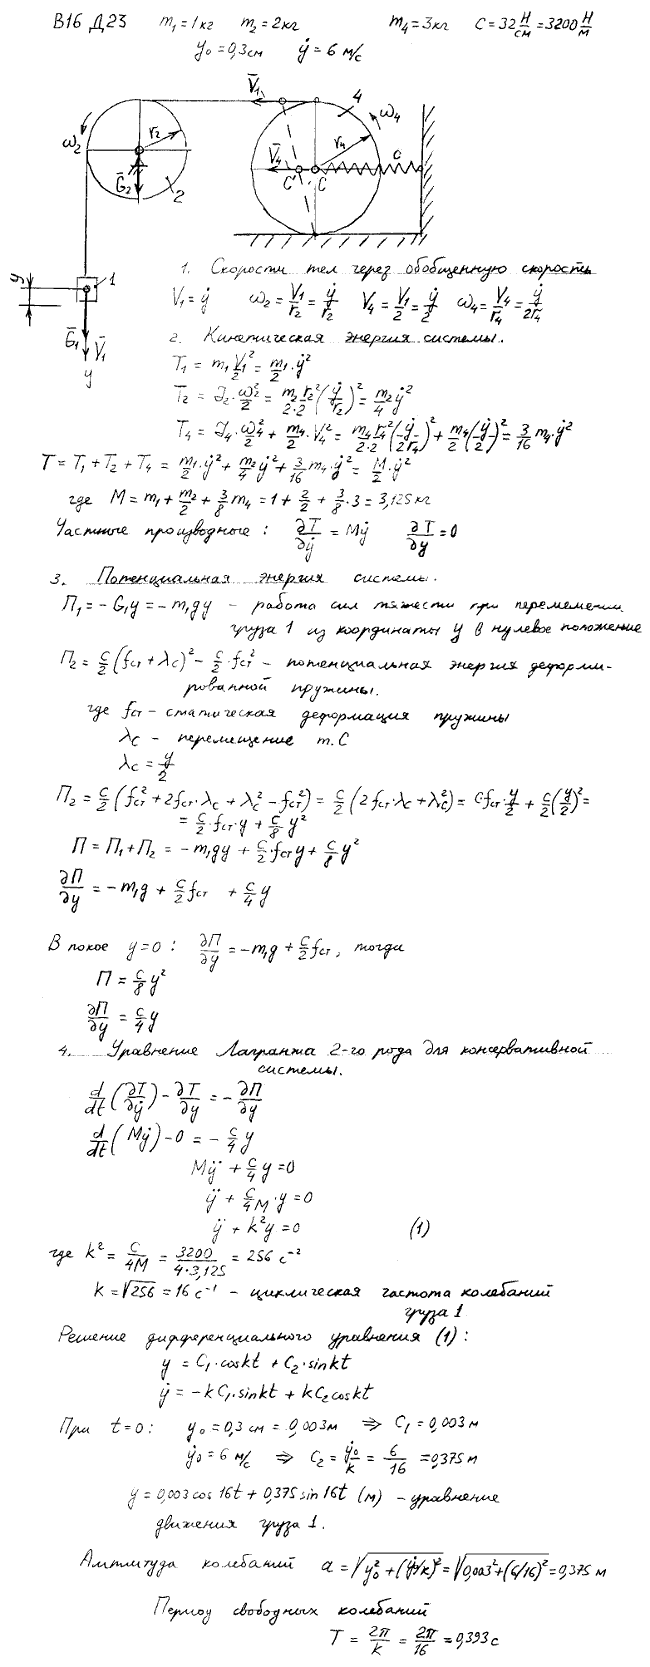 В16 Д23 m₁=1кг m₂=2кг m₄=3кг C=32 Н/см=3200 Н/м
y₀=0,3см ẏ=6 м/с
V̄₁ 4 ω₄
ω₂ r₂ V̄₄ r₄ c
Ḡ₂ 2 C' C
y 1
Ḡ₁ V̄₁
y
1. Скорости тел через обобщенную скорость
V₁=ẏ ω₂=V₁/r₂=ẏ/r₂ V₄=V₁/2=ẏ/2 ω₄=V₄/r₄=ẏ/2r₄
2. Кинетическая энергия системы.
T₁=m₁V₁²/2=m₁/2·ẏ²
T₂=J₂·ω₂²/2=m₂r₂²/2·2(ẏ/r₂)²=m₂/4 ẏ²
T₄=J₄·ω₄²/2+m₄/2·V₄²=m₄r₄²/2·2(ẏ/2r₄)²+m₄/2(ẏ/2)²=3/16 m₄·ẏ²
T=T₁+T₂+T₄=m₁/2·ẏ²+m₂/4 ẏ²+3/16 m₄·ẏ²=M/2·ẏ²
где M=m₁+m₂/2+3/8 m₄=1+2/2+3/8·3=3,125кг
Частные производные: ∂T/∂ẏ=Mẏ ∂T/∂y=0
3. Потенциальная энергия системы.
П₁=-G₁y=-m₁gy - работа сил тяжести при перемещении
груза 1 из координаты y в нулевое положение
П₂=c/2(fст+λc)²-c/2·fст² - потенциальная энергия деформи-
рованной пружины.
где fст - статическая деформация пружины
λc - перемещение т.С
λc=y/2
П₂=c/2(fст²+2fст·λc+λc²-fст²)=c/2(2fст·λc+λc²)=cfст·y/2+c/2(y/2)²=
=c/2·fст·y+c/8 y²
П=П₁+П₂=-m₁gy+c/2·fст y+c/8 y²
∂П/∂y=-m₁g+c/2 fст +c/4 y
В покое y=0: ∂П/∂y=-m₁g+c/2 fст, тогда
П=c/8 y²
∂П/∂y=c/4 y
4. Уравнение Лагранжа 2-го рода для консервативной
системы.
d/dt(∂T/∂ẏ)-∂T/∂y=-∂П/∂y
d/dt(Mẏ)-0=-c/4 y
Mÿ+c/4 y=0
ÿ+c/4M·y=0
ÿ+k²y=0 (1)
где k²=C/4M=3200/4·3,125=256 с⁻²
k=√256=16 с⁻¹ - циклическая частота колебаний
груза 1
Решение дифференциального уравнения (1):
y=C₁·coskt+C₂·sinkt
ẏ=-kC₁·sinkt+kC₂coskt
При t=0: y₀=0,3 см=0,003м ⇒ C₁=0,003м
ẏ₀=6 м/с ⇒ C₂=ẏ₀/k=6/16=0,375м
y=0,003cos 16t+0,375sin 16t (м) - уравнение
движения груза 1.
Амплитуда колебаний a=√y₀²+(ẏ₀/k)²=√0,003²+(6/16)²=0,375 м
Период свободных колебаний
T=2π/k=2π/16=0,393с